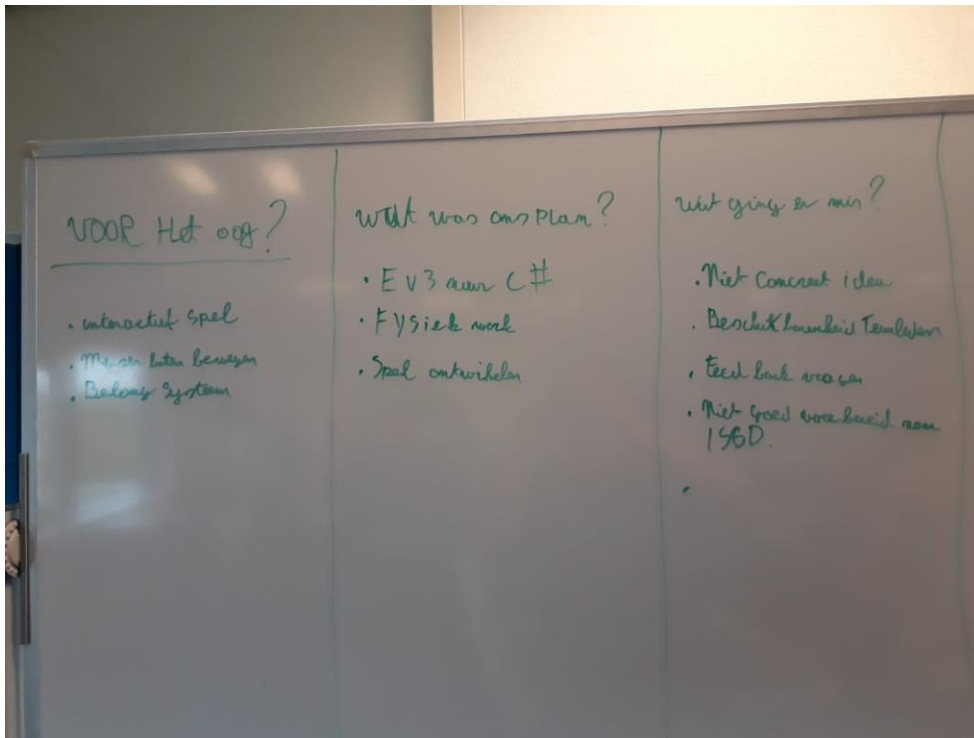 VOOR Het oog?
• interactief spel
• Mensen laten bewegen
• Beloning Systeem
Wat was ons Plan?
• EV3 naar C#
• Fysiek werk
• Spel ontwikelen
wat ging er mis?
• Niet Concreet idee
• Beschikbaarheid Teamleden
• Feed back vragen
• Niet goed voorbereid naar
1SGD.